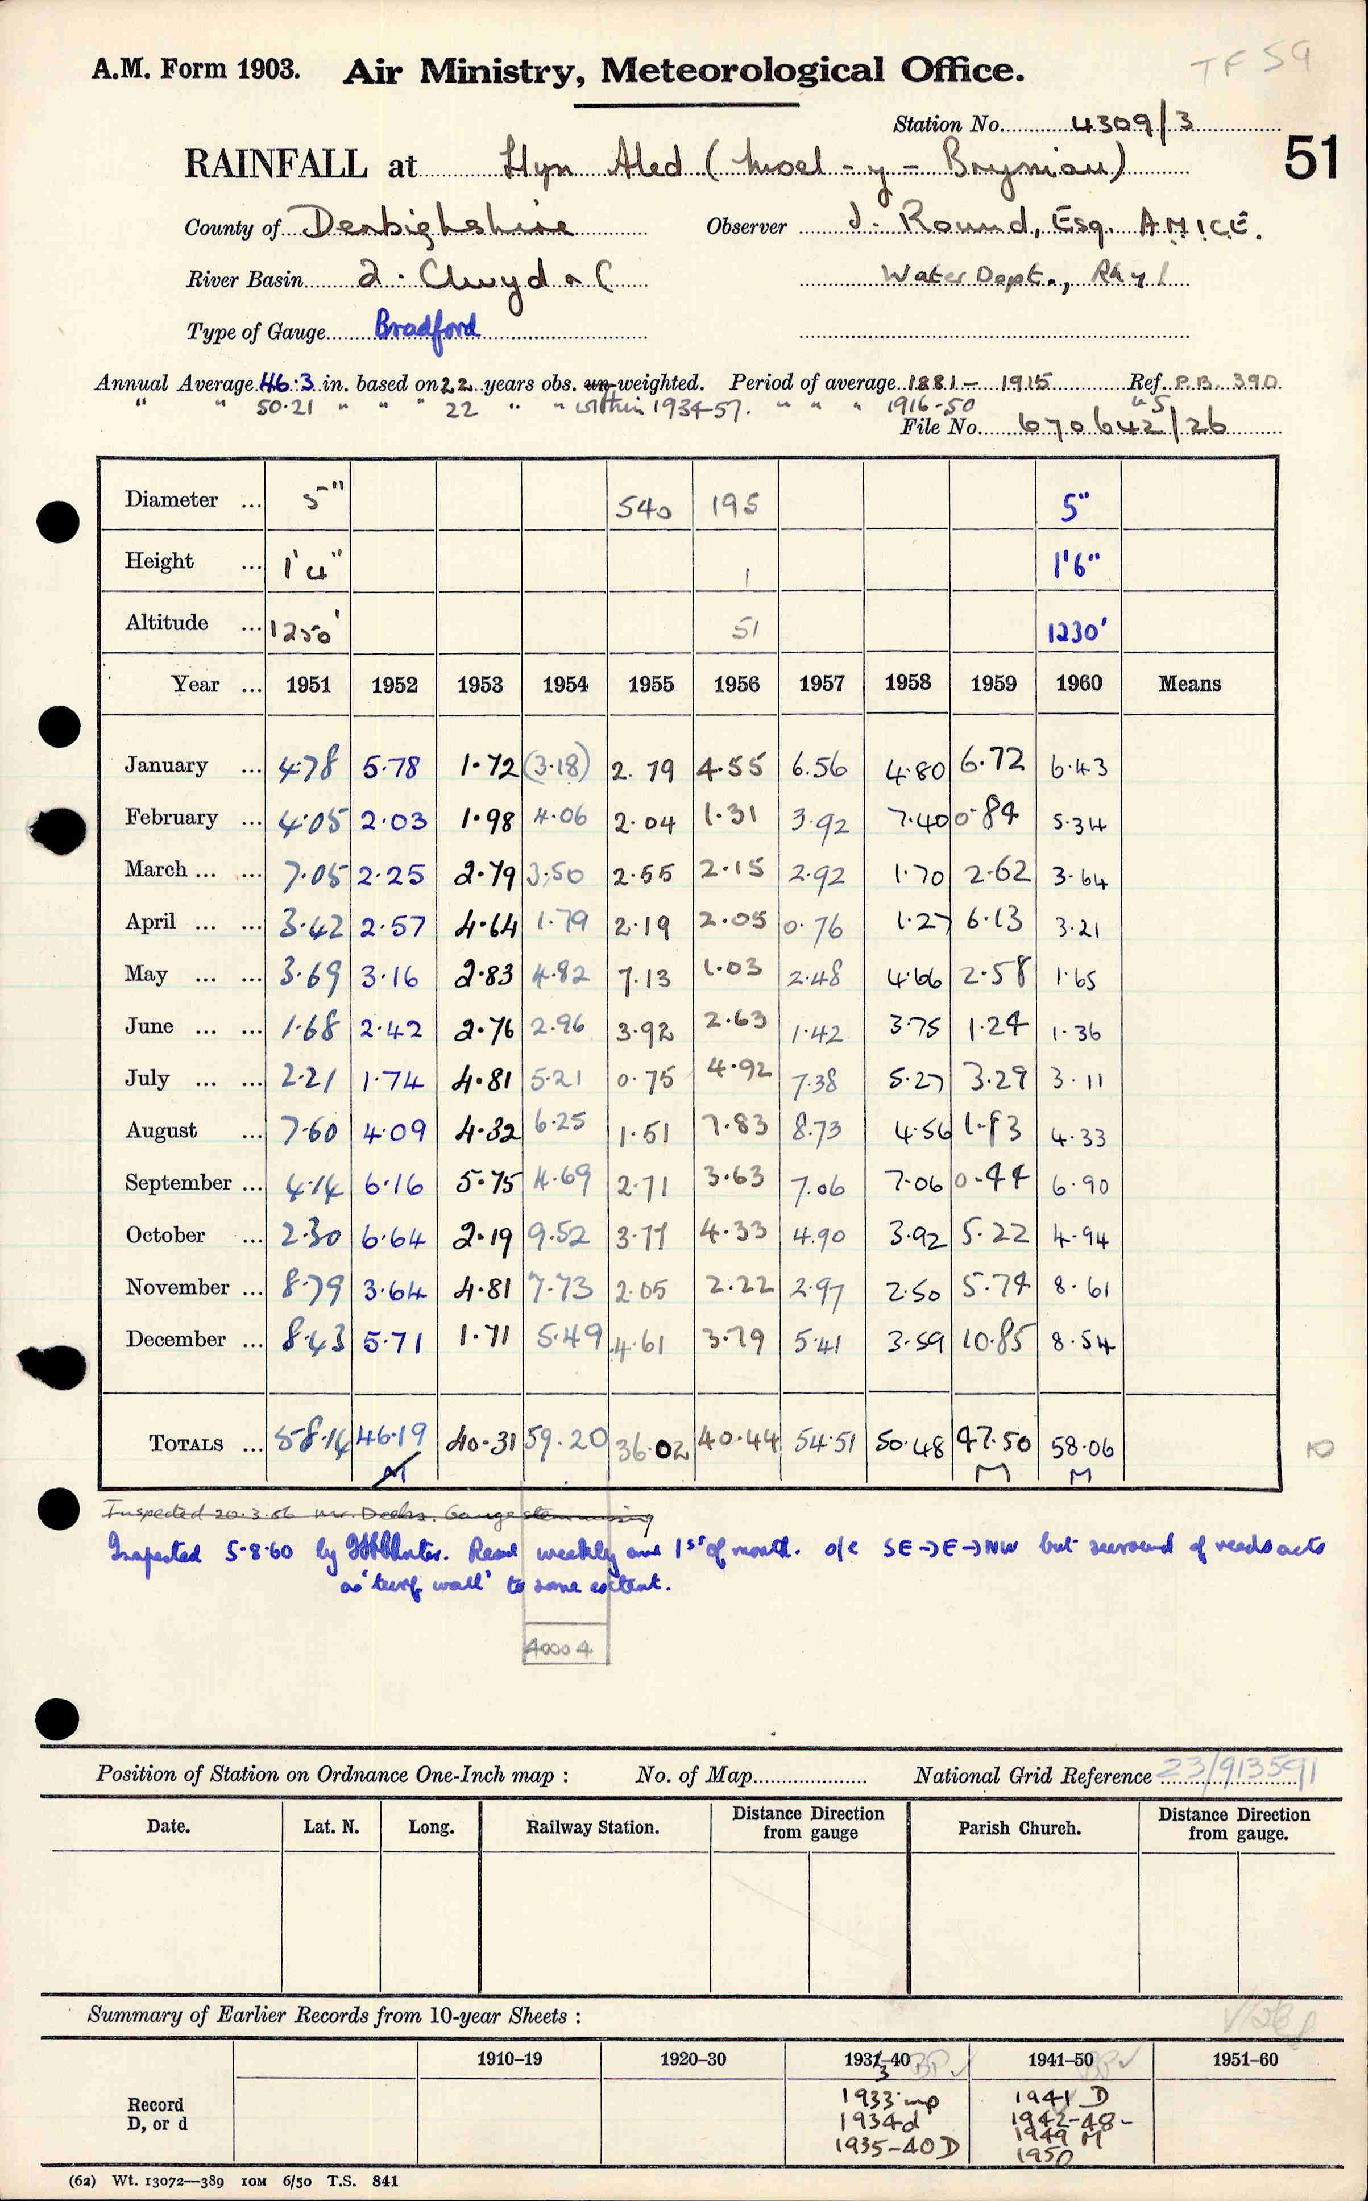 TF 59
A.M. Form 1903. Air Ministry, Meteorological Office.
Station No. 4309/3
51
RAINFALL at Llyn Aled (Moel-y-Bryniau)
County of Denbighshire Observer J. Round, Esq. A.M.I.C.E.
River Basin 2. Clwyd & C Water Dept., Rhyl
Type of Gauge Bradford
Annual Average 46.3 in. based on 22 years obs. un-weighted. Period of average 1881 - 1915 Ref. P.B. 390
" " 50.21 " " " 22 " " within 1934-57. " " " 1916-50 " S
File No. 670642/26
Diameter ... 5" 540 195 5"
Height ... 1'4" 1 1'6"
Altitude ... 1250' 51 1230'
Year ... 1951 1952 1953 1954 1955 1956 1957 1958 1959 1960 Means
January ... 4.78 5.78 1.72 (3.18) 2.79 4.55 6.56 4.80 6.72 6.43
February ... 4.05 2.03 1.98 4.06 2.04 1.31 3.92 7.40 0.84 5.34
March ... ... 7.05 2.25 2.79 3.50 2.55 2.15 2.92 1.70 2.62 3.64
April ... ... 3.42 2.57 4.64 1.79 2.19 2.05 0.76 1.27 6.13 3.21
May ... ... 3.69 3.16 2.83 4.82 7.13 1.03 2.48 4.66 2.58 1.65
June ... ... 1.68 2.42 2.76 2.96 3.92 2.63 1.42 3.75 1.24 1.36
July ... ... 2.21 1.74 4.81 5.21 0.75 4.92 7.38 5.27 3.29 3.11
August ... 7.60 4.09 4.32 6.25 1.51 7.83 8.73 4.56 1.83 4.33
September ... 4.14 6.16 5.75 4.69 2.71 3.63 7.06 7.06 0.44 6.90
October ... 2.30 6.64 2.19 9.52 3.77 4.33 4.90 3.92 5.22 4.94
November ... 8.79 3.64 4.81 7.73 2.05 2.22 2.97 2.50 5.74 8.61
December ... 8.43 5.71 1.71 5.49 4.61 3.79 5.41 3.59 10.85 8.54
TOTALS ... 58.14 46.19 40.31 59.20 36.02 40.44 54.51 50.48 47.50 58.06 10
M M M
Inspected 20.3.56 Mr. Deeks. Gauge stem missing
Inspected 5-8-60 by Read weekly and 1st of month. o/e SE→E→NW but surround of reeds acts
as 'turf wall' to some extent.
40004
Position of Station on Ordnance One-Inch map : No. of Map National Grid Reference 23/913591
Date. Lat. N. Long. Railway Station. Distance Direction from gauge Parish Church. Distance Direction from gauge.
Summary of Earlier Records from 10-year Sheets :
1910–19 1920–30 1931–40 3 BP ✓ 1941–50 BP ✓ 1951–60
Record
D, or d
1933 imp 1941 D
1934 d 1942-48-
1935-40 D 1949 M
1950
(62) Wt. 13072—389 10M 6/50 T.S. 841